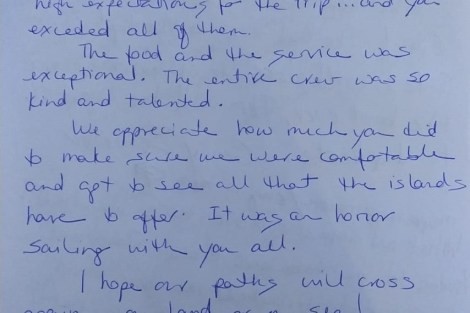 high expectations for the trip...and you
exceded all of them.
The food and the service was
exceptional. The entire crew was so
kind and talented.
We appreciate how much you did
to make sure we were comfortable
and got to see all that the islands
have to offer. It was an honor
sailing with you all.
I hope our paths will cross
again land or sea!